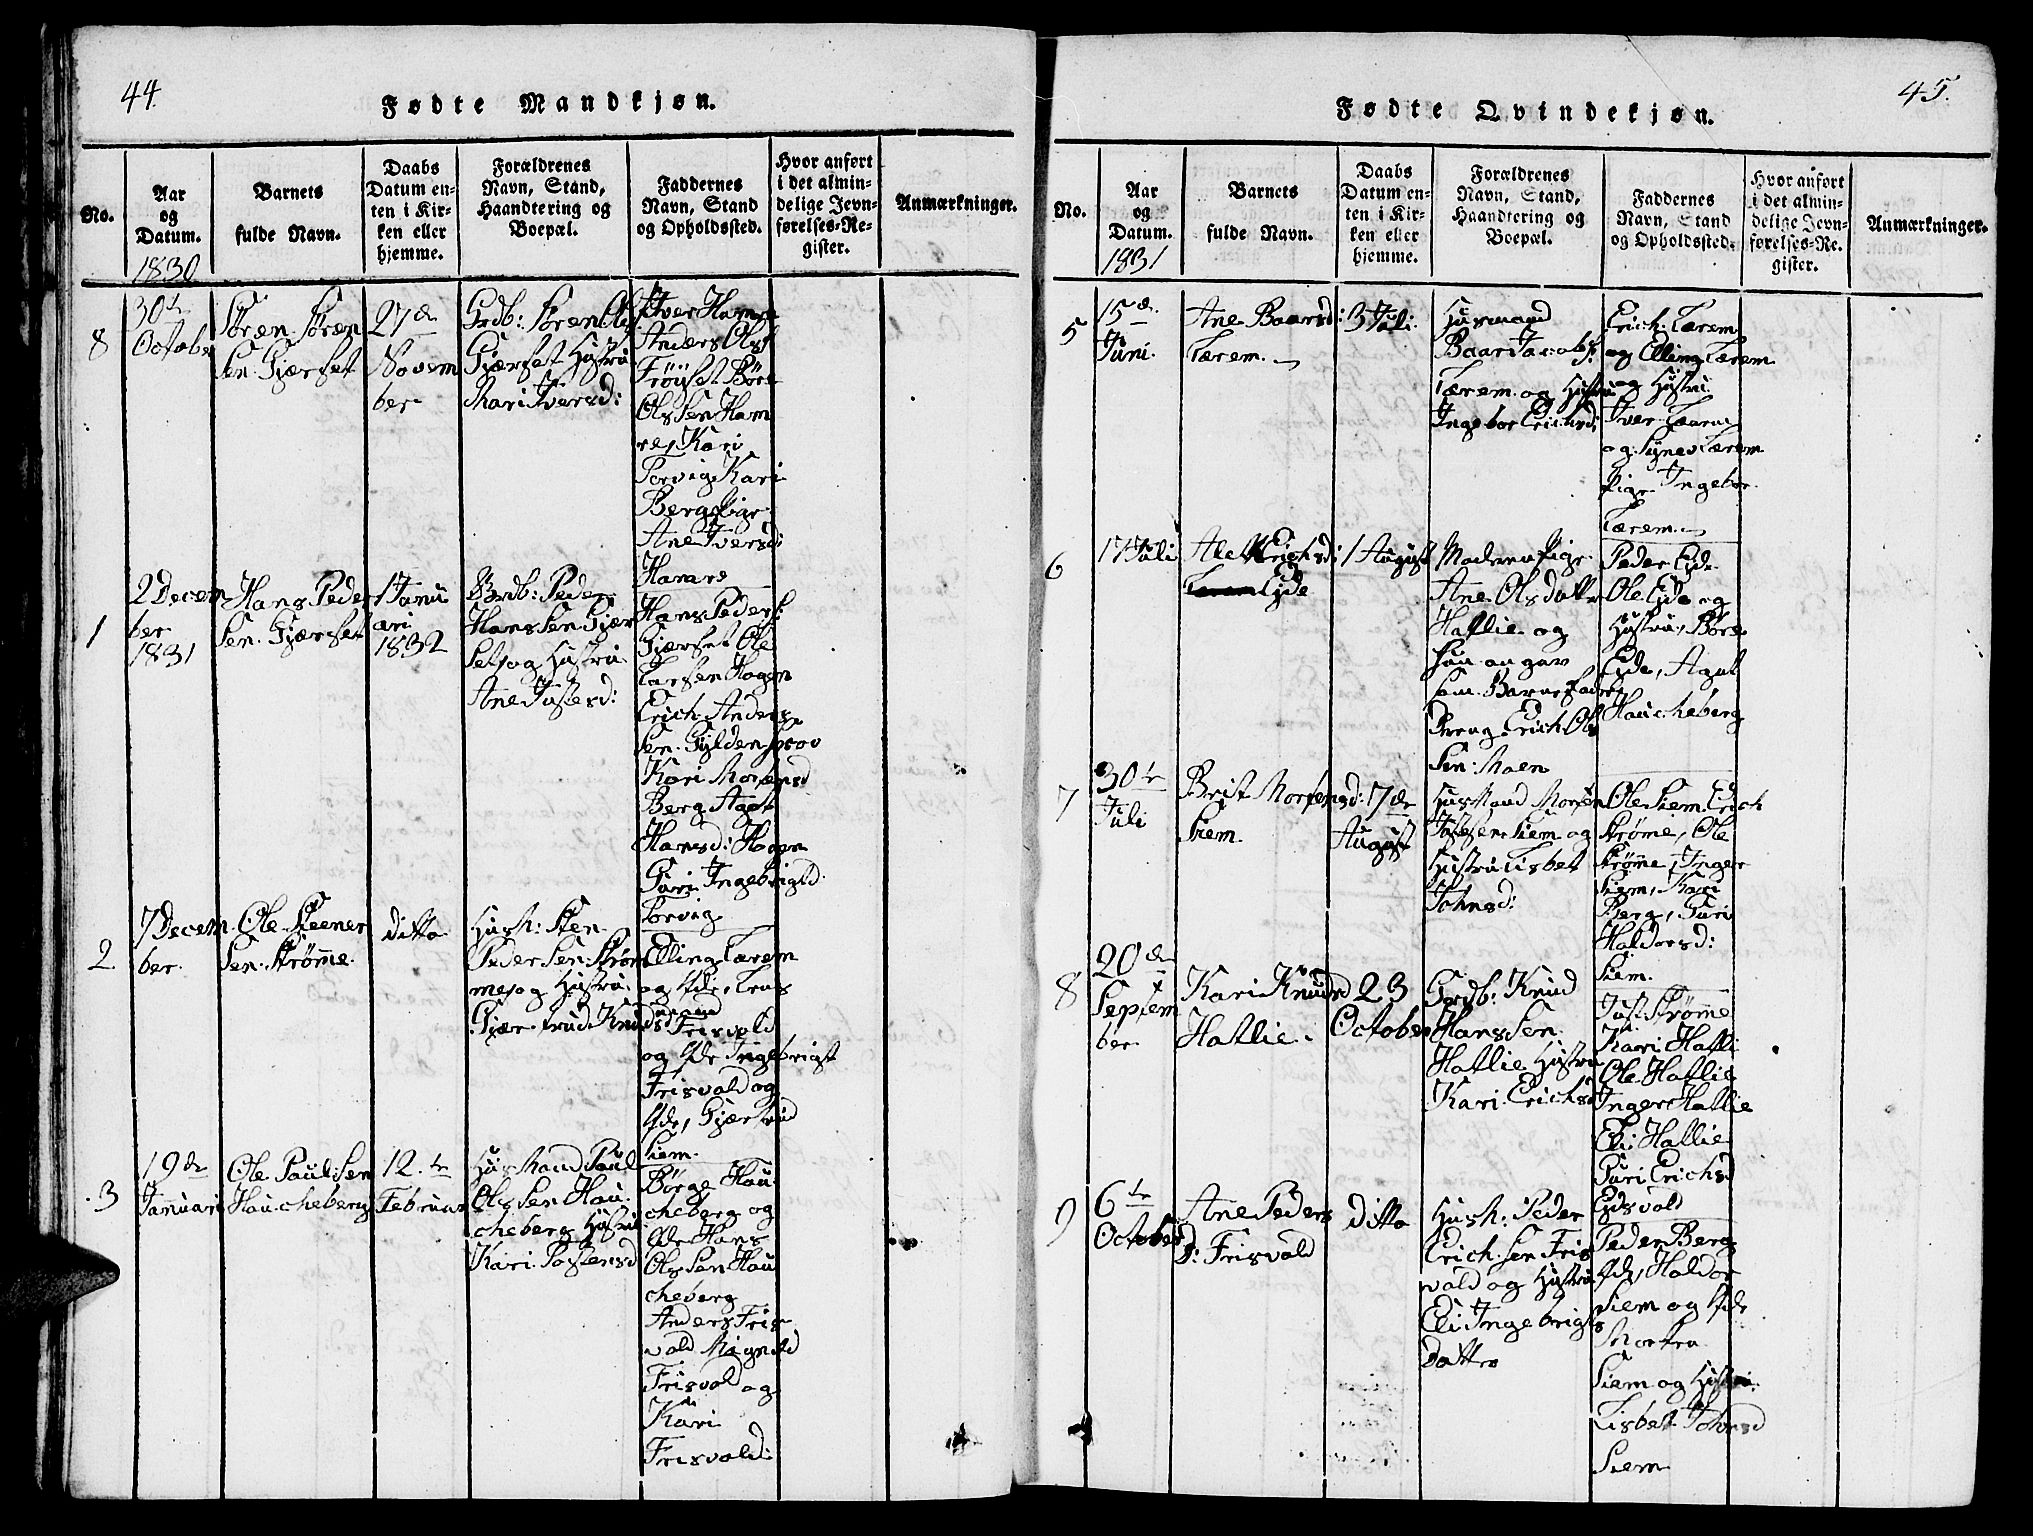 44.
Fødte Mandkjøn.
No.
Aar
og
Datum.
1830
Barnets
fulde Navn.
Daabs
Datum en-
ten i Kir-
ken eller
hjemme.
Forældrenes
Navn, Stand,
Haandtering og
Boepæl.
Faddernes
Navn, Stand
og Opholdssted.
Hvor anført
i det almin-
delige Jevn-
førelses-Re-
gister.
Anmærkninger.
8
30te
October
Søren Søren
Sen Gjerset
27de
Novem
ber
Grdb: Søren Ols
Gjerset Hustru
Mari Iversd:
Iver Hamre
Anders Ols
Frøyset Børe
Ols Sen Ham
re, Kari
Torvig Kari
Berg Pige
Ane Iversd:
Hamre
1
2 Decem
ber
1831
Hans Peder
Sen Gjerset
1 Janu
ari
1832
Grdb: Peder
Hans Sen Gjer
Set og Hustru
Ane Justesd:
Hans Peders:
Gjerset Ole
Larsen Hagen
Erich Anders
Sen Gylden Skov
Kari Mortensd
Berg Agat
Hansd: Hagen
Guri Ingebrigtd.
Torvig
2
7 Decem
ber
Ole Steener
Sen Strømme
ditto
Husm: Sten
Peder Sen Strøm
me og Hustru
Gjertrud Knuds
Elling Lærem
og Hde, Lars
Frisvold
og Hde Ingebrigt
Frisvold og
Hde, Gjertrud
Siem
3
19de
Januari
Ole Paul Sen
Haucheberg
12te
Februar
Husmand Paul
Ols Sen Hau
cheberg Hustru
Kari Postensd
Børge Hau
cheberg og
Hde Hans
Ols Sen Hau
cheberg
Anders Fris
vold Magnild
Frisvold og
Kari
Frisvold:
45.
Fødte Qvindekjøn.
No.
Aar
og
Datum.
1831
Barnets
fulde Navn.
Daabs
Datum en-
ten i Kir-
ken eller
hjemme.
Forældrenes
Navn, Stand,
Haandtering og
Boepæl.
Faddernes
Navn, Stand
og Opholdssted.
Hvor anført
i det almin-
delige Jevn-
førelses-Re-
gister.
Anmærkninger.
5
15de
Juni.
Ane Baarsd:
Lærem.
3 Juli
Husmand
Baar Jacobs:
Lærem og Hustru
Ingebor Erichsd:
Erich Lærem
og Elling Lærem
og Hustru
Iver Lærem
og Synev Lærem
Pige Ingebor
Lærem.
6
17 Juli
Erichsd:
Eide
1 August
Pige
Ane Ols datter
Hatlie og
Hun an gav
som Barnefader
Dreng Erich Ols
Sen Moen
Peder Eide
Ole Eide og
Hustru, Børe
Eide, Agat
Haucheberg
7
30te
Juli
Brit Mortensd:
Siem.
7de
August
Husmand Morten
Justesen Siem og
Hustru Lisbet
Johnsd:
Ole Siem Erich
Strømme, Ole
Strømme, Inger
Siem, Kari
Berg, Guri
Haldorsd:
Siem.
8
20de
Septem
ber
Kari Knudsd
Hatlie.
23
October
Grdb: Knud
Hans Sen
Hatlie Hustru
Kari Erichsd
Just Strømme
Kari Hatli
Ole Hatlie
Inger Hatlie
Eli Hatlie
Guri Erichsd
Eidsvold
9
6te
October
Ane Peders
D: Frisvold
ditto
Husm: Peder
Erich Sen Fris
vold og Hustru
Eli Ingebrigts
datter
Peder Berg
Hde, Haldor
Siem og Hde
Morten
Siem og Hustru
Lisbet Johnsd
Siem